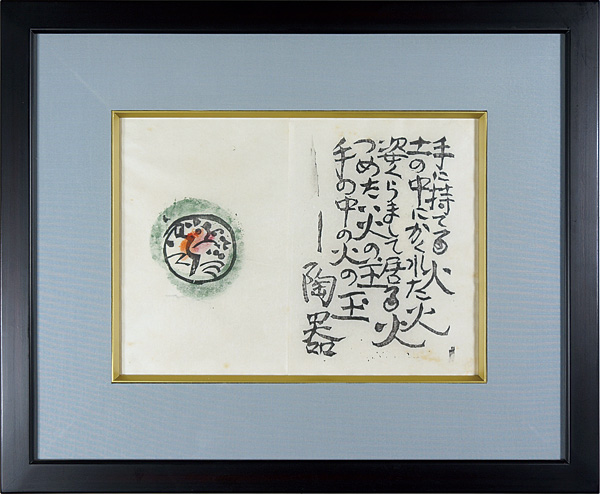 手に持てる火
土の中にかくれた火
姿くらまして居る火
つめたい火の玉
手の中の火の玉
――陶器